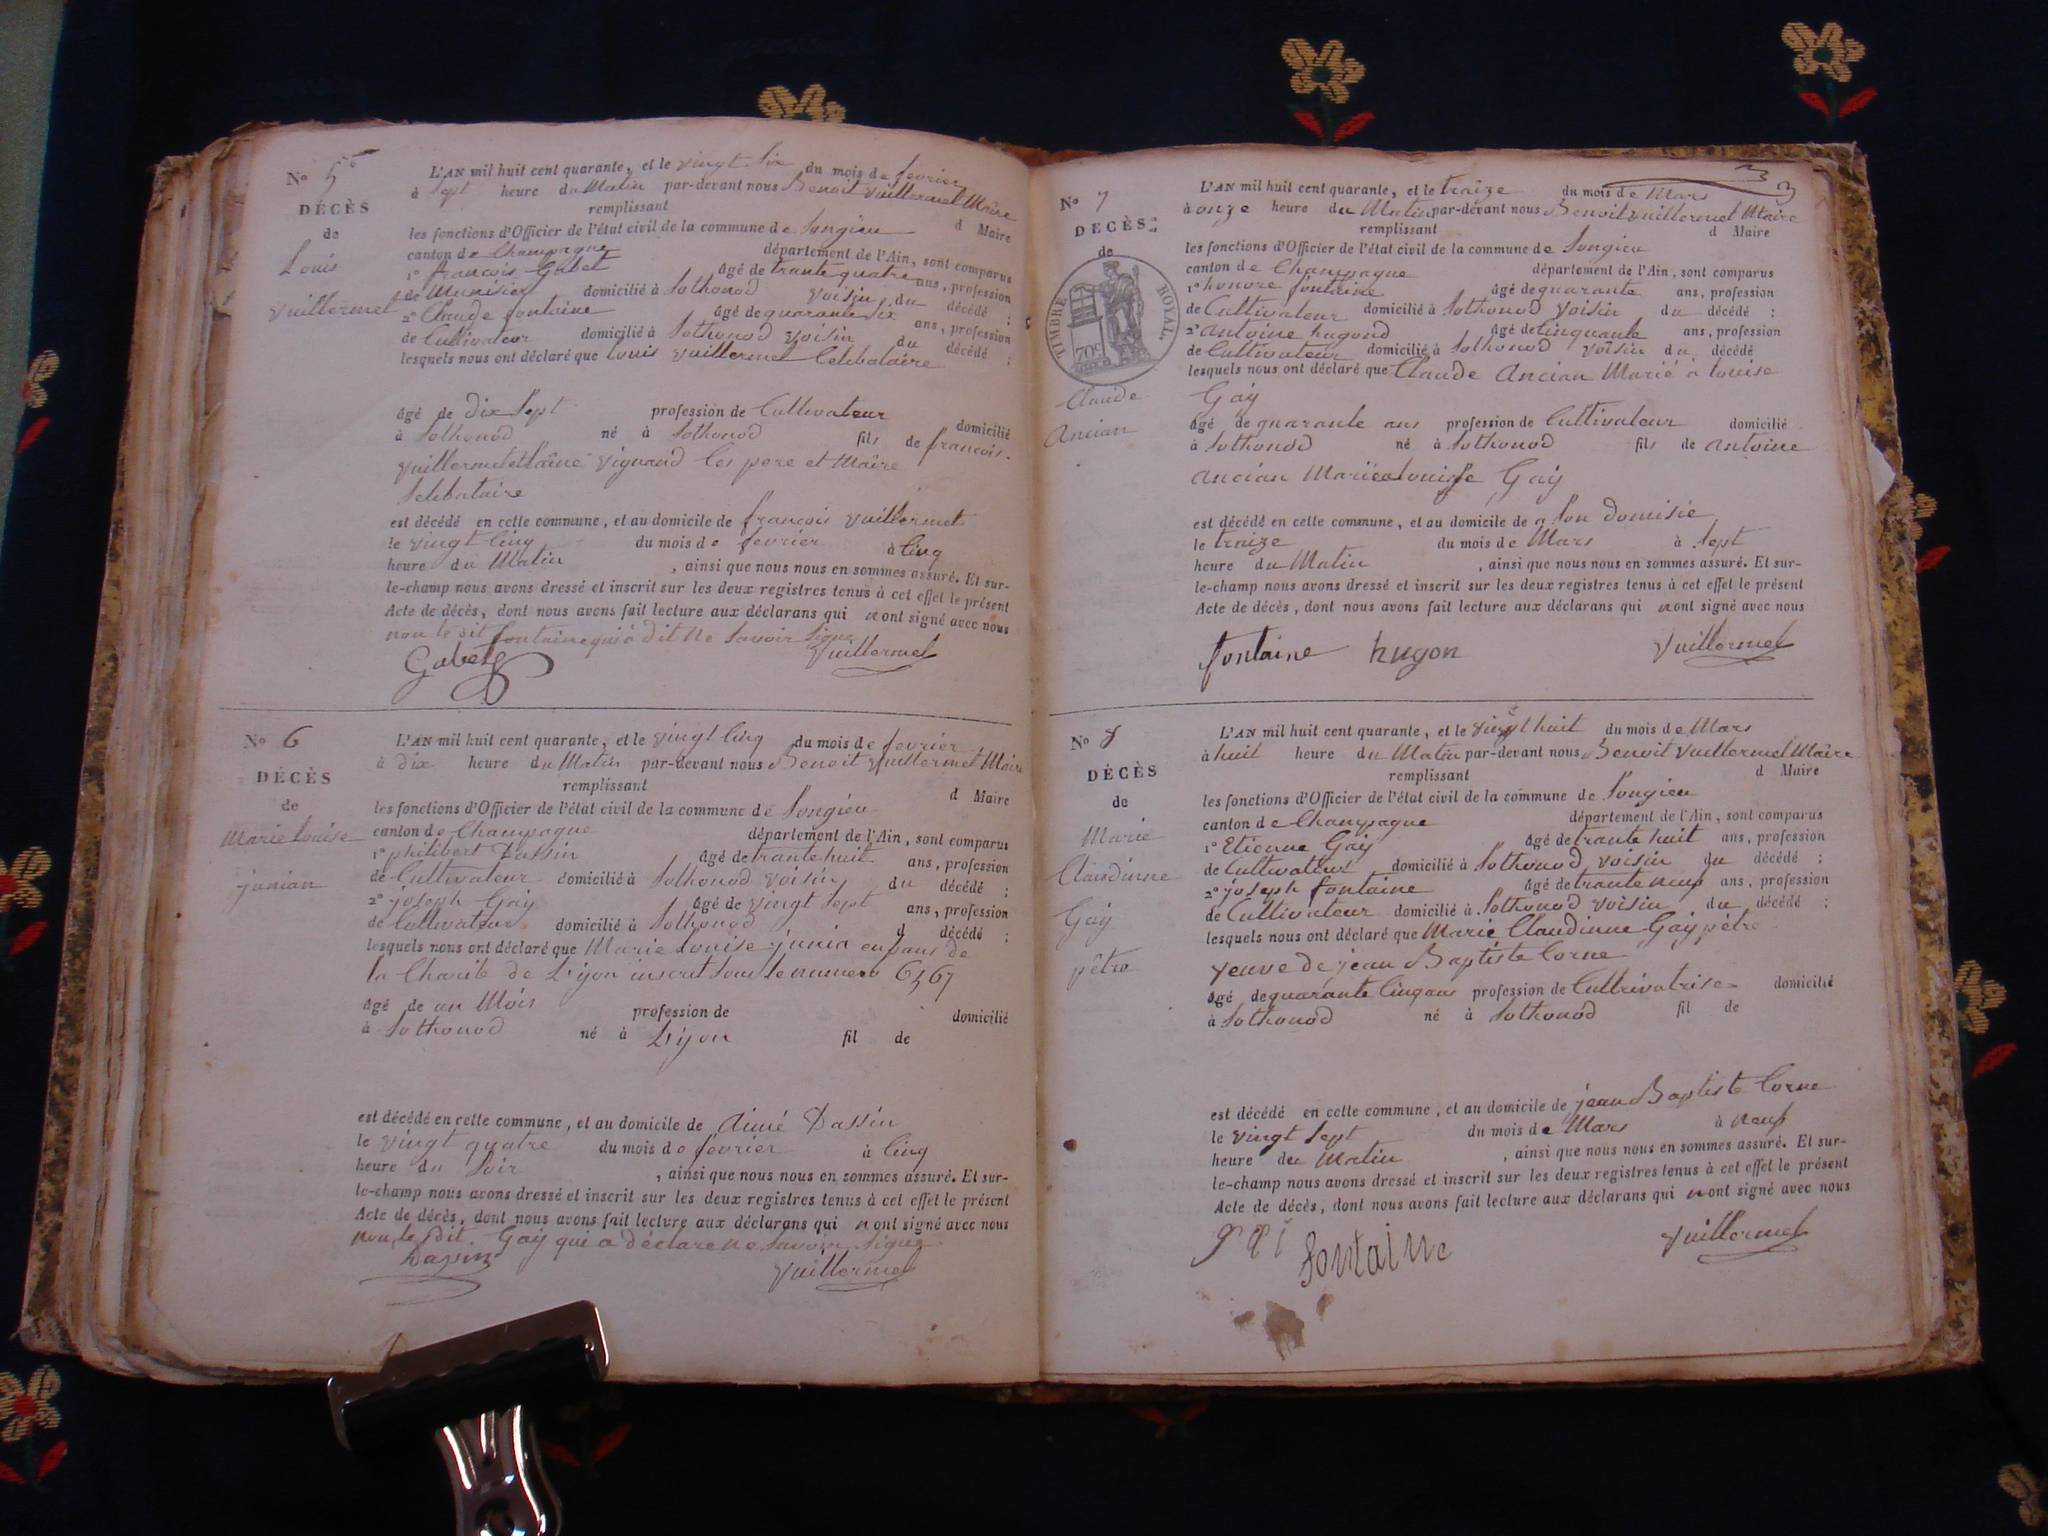 No 5
DÉCÈS
de
Louis
Vuillermet
L'AN mil huit cent quarante, et le vingt Six du mois de fevrier
à Sept heure du Matin par-devant nous Benoit Vuillermet Maire
remplissant d Maire
les fonctions d'Officier de l'état civil de la commune de Songieu
canton de Champagne département de l'Ain, sont comparus
1° francois Gabet âgé de trante quatre ans, profession
de domicilié à Sothonod voisin du décédé ;
2° Claude fontaine âgé de quarante Six ans, profession
de Cultivateur domicilié à Sothonod voisin du décédé ;
lesquels nous ont déclaré que Louis Vuillermet Celibataire
âgé de dix Sept profession de Cultivateur domicilié
à Sothonod né à Sothonod fils de francois
Vuillermet et Vignand Ces pere et Maire
Selibataire
est décédé en cette commune, et au domicile de francois Vuillermet
le vingt Cinq du mois de fevrier à Cinq
heure du Matin , ainsi que nous nous en sommes assuré. Et sur-
le-champ nous avons dressé et inscrit sur les deux registres tenus à cet effet le présent
Acte de décès, dont nous avons fait lecture aux déclarans qui n ont signé avec nous
non le dit fontaine qui a dit ne Savoir Signe
Gabet Vuillermet
No 6
DÉCÈS
de
Marie Louise
junian
L'AN mil huit cent quarante, et le vingt Cinq du mois de fevrier
à dix heure du Matin par-devant nous Benoit Vuillermet Maire
remplissant d Maire
les fonctions d'Officier de l'état civil de la commune de Songieu
canton de Champagne département de l'Ain, sont comparus
1° philibert Dassin âgé de trante huit ans, profession
de Cultivateur domicilié à Sothonod voisin du décédé ;
2° joseph Gay âgé de vingt Sept ans, profession
de Cultivateur domicilié à Sothonod d décédé ;
lesquels nous ont déclaré que Marie Louise junian enfans de
la Charite de Lyon inscrit Sous le numero 6567
âgé de un Mois profession de domicilié
à Sothonod né à Lyon fil de
est décédé en cette commune, et au domicile de Aimé Dassin
le vingt quatre du mois de fevrier à Cinq
heure du Soir , ainsi que nous nous en sommes assuré. Et sur-
le-champ nous avons dressé et inscrit sur les deux registres tenus à cet effet le présent
Acte de décès, dont nous avons fait lecture aux déclarans qui n ont signé avec nous
non le dit Gay qui a déclare ne Savoir Signe
Dassin Vuillermet
3
No 7
DÉCÈS
de
TIMBRE ROYAL
70c
Claude
Ancian
L'AN mil huit cent quarante, et le traize du mois de Mars
à onze heure du Matin par-devant nous Benoit Vuillermet Maire
remplissant d Maire
les fonctions d'Officier de l'état civil de la commune de Songieu
canton de Champagne département de l'Ain, sont comparus
1° honore fontaine âgé de quarante ans, profession
de Cultivateur domicilié à Sothonod voisin du décédé ;
2° antoine hugond âgé de Cinquante ans, profession
de Cultivateur domicilié à Sothonod voisin du décédé
lesquels nous ont déclaré que Claude Ancian Marié a Louise
Gay
âgé de quarante ans profession de Cultivateur domicilié
à Sothonod né à Sothonod fils de antoine
ancian Marié a Louisse Gay
est décédé en cette commune, et au domicile de a Son domisie
le traize du mois de Mars à Sept
heure du Matin , ainsi que nous nous en sommes assuré. Et sur-
le-champ nous avons dressé et inscrit sur les deux registres tenus à cet effet le présent
Acte de décès, dont nous avons fait lecture aux déclarans qui n ont signé avec nous
fontaine hugon Vuillermet
No 8
DÉCÈS
de
Marie
Claudinne
Gay
pêtre
L'AN mil huit cent quarante, et le vingt huit du mois de Mars
à huit heure du Matin par-devant nous Benoit Vuillermet Maire
remplissant d Maire
les fonctions d'Officier de l'état civil de la commune de Songieu
canton de Champagne département de l'Ain, sont comparus
1° Etienne Gay âgé de trante huit ans, profession
de Cultivateur domicilié à Sothonod voisin du décédé ;
2° joseph fontaine âgé de trante neuf ans, profession
de Cultivateur domicilié à Sothonod voisin du décédé ;
lesquels nous ont déclaré que Marie Claudinne Gay pêtre
veuve de jean Baptiste Corne
âgé de quarante Cinq ans profession de Cultivatrise domicilié
à Sothonod né à Sothonod fil de
est décédé en cette commune, et au domicile de jean Baptiste Corne
le vingt Sept du mois de Mars à neuf
heure du Matin , ainsi que nous nous en sommes assuré. Et sur-
le-champ nous avons dressé et inscrit sur les deux registres tenus à cet effet le présent
Acte de décès, dont nous avons fait lecture aux déclarans qui n ont signé avec nous
fontaine Vuillermet